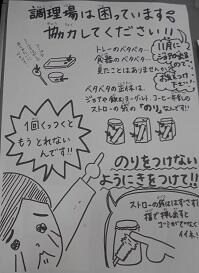 調理場は困っています!!
協力してください!!
トレーのベタベタ…
食器のベタベタ…
見たことはありませんか?
11月に
ベタベタの正体は、
ジョアや飲むヨーグルト、コーヒー牛乳の
ストローの袋の「のり」なんです!!
1回くっつくと
もうとれない
んです!!
のりをつけない
ようにきをつけて!!
ストローの袋は
指で押し出すと
ゴミがでなくて
イイネ!